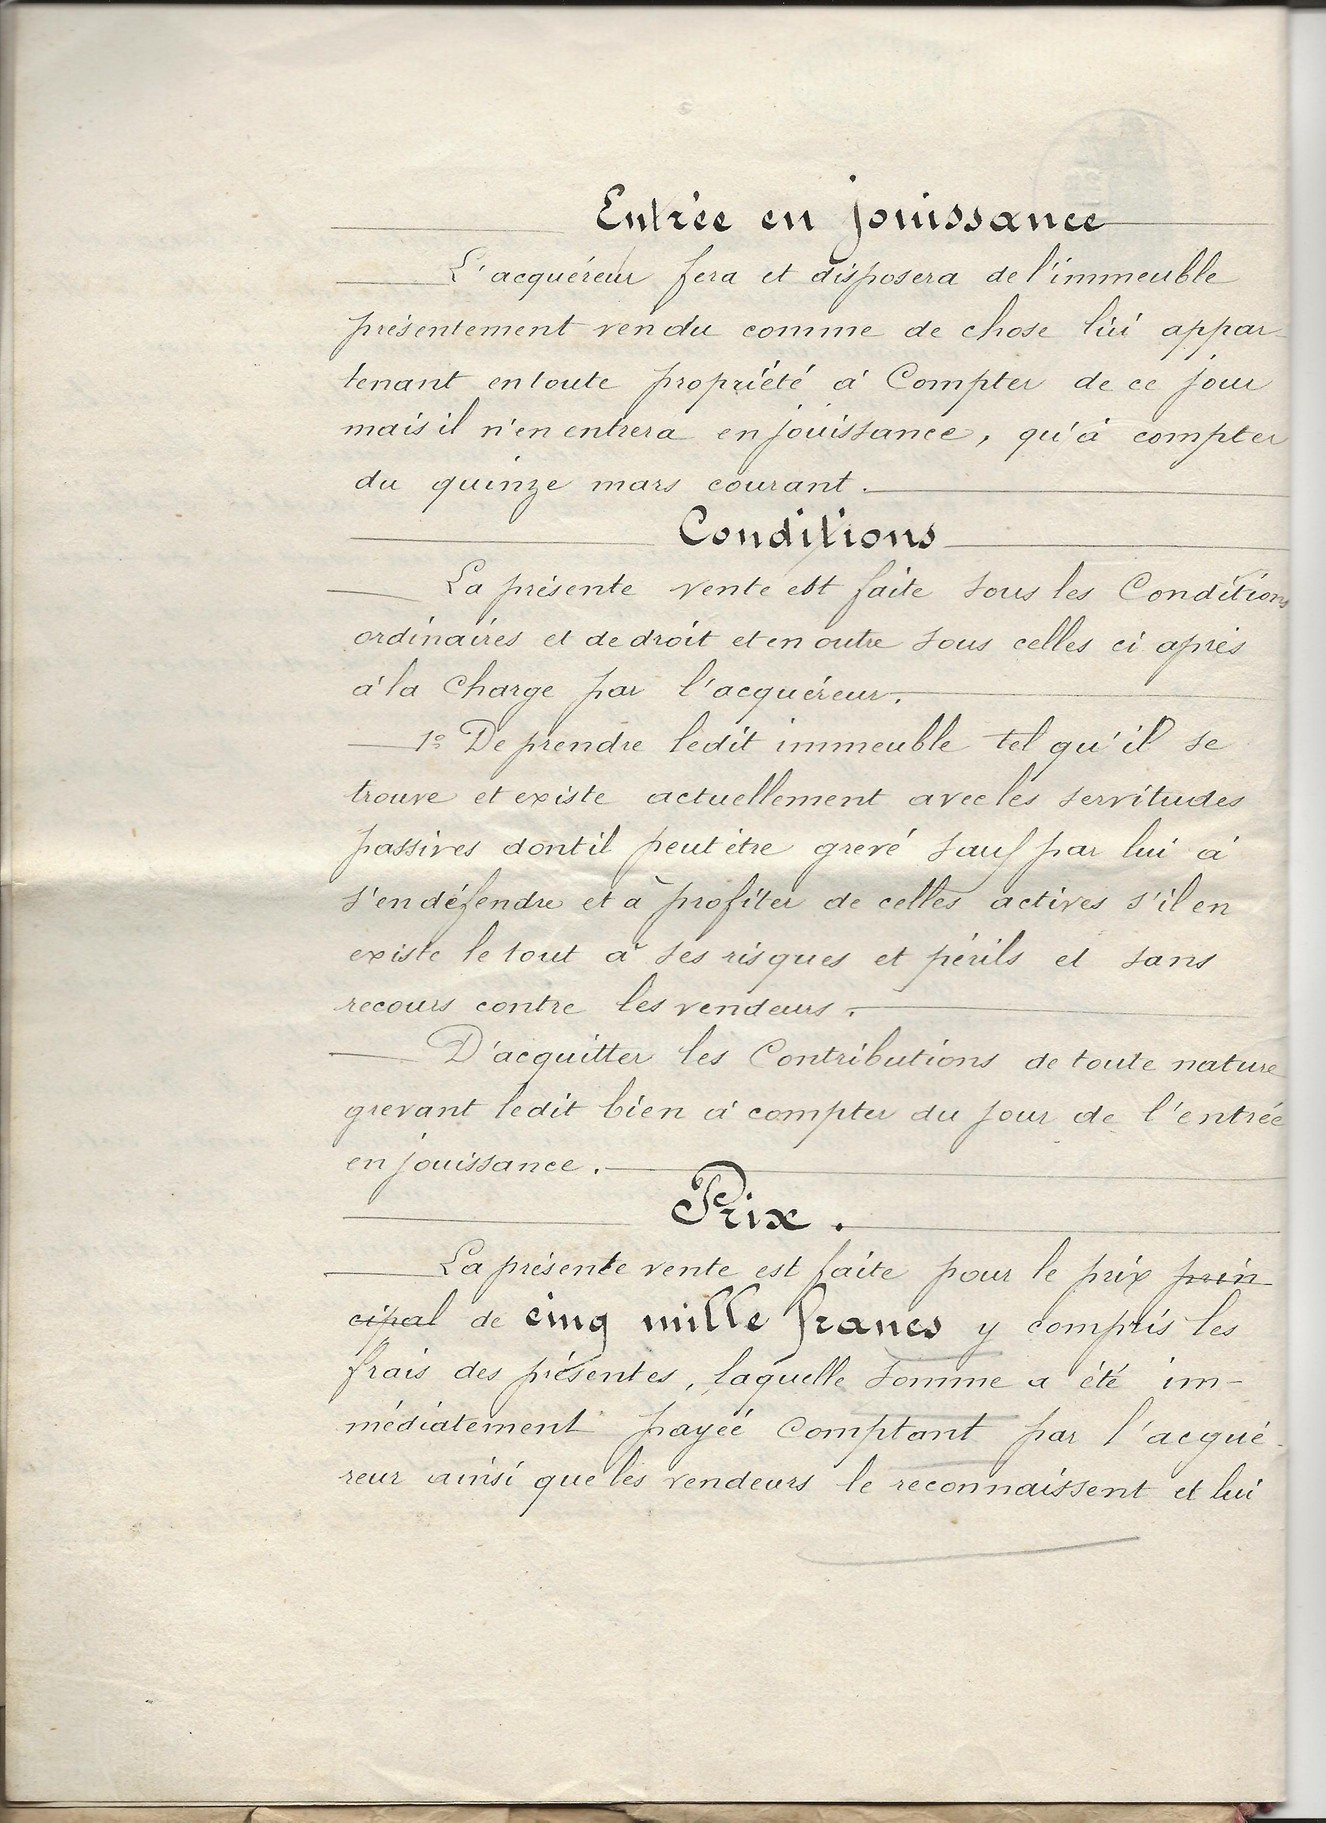 Entrée en jouissance
L'acquéreur fera et disposera de l'immeuble
présentement vendu comme de chose lui appar-
tenant en toute propriété à Compter de ce jour
mais il n'en entrera en jouissance, qu'à compter
du quinze mars courant.
Conditions
La présente vente est faite sous les Conditions
ordinaires et de droit et en outre sous celles ci après
à la Charge par l'acquéreur.
1º De prendre ledit immeuble tel qu'il se
trouve et existe actuellement avec les servitudes
passives dont il peut être grevé sauf par lui à
s'en défendre et à profiter de celles actives s'il en
existe le tout à ses risques et périls et sans
recours contre les vendeurs.
D'acquitter les Contributions de toute nature
grevant ledit bien à compter du jour de l'entrée
en jouissance.
Prix.
La présente vente est faite pour le prix prin
cipal de cinq mille francs y compris les
frais des présentes, laquelle somme a été im-
médiatement payée Comptant par l'acqué-
reur ainsi que les vendeurs le reconnaissent et lui